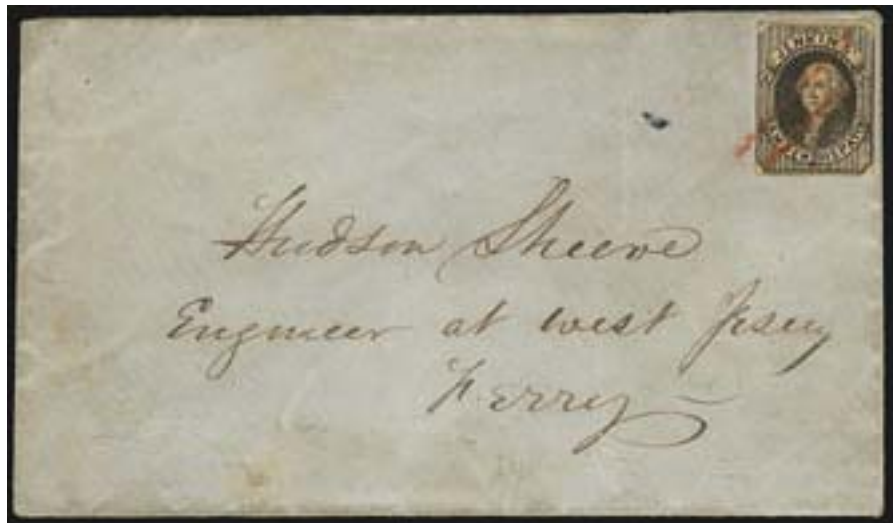 JENKINS
Hudson Sheeve
Engineer at west Jersey
Ferry